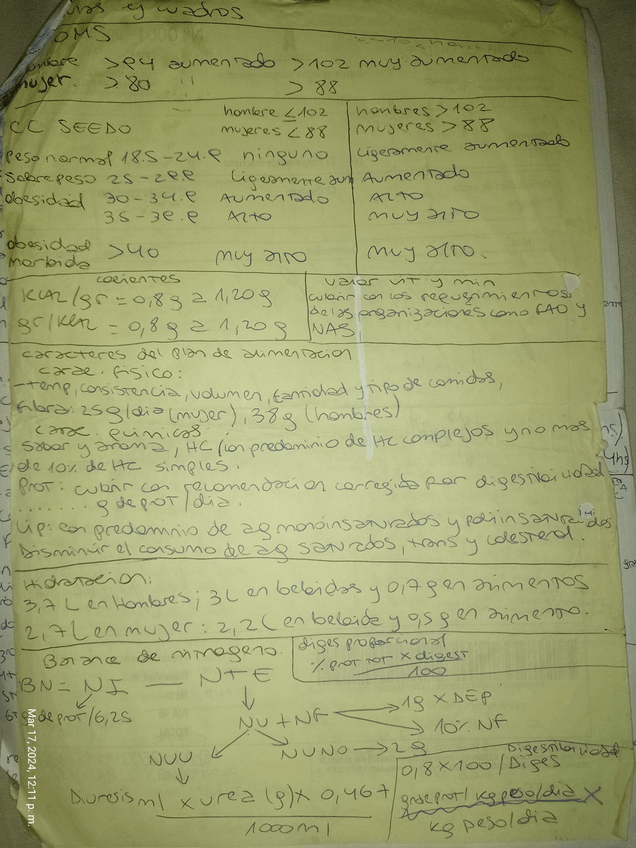 y cuadros
OMS
hombre >94 aumentado >102 muy aumentado
mujer. >80 >88
CC SEEDO
hombre <102
mujeres <88
hombres >102
mujeres >88
Peso normal 18.5-24.9 ninguno Ligeramente aumentado
Sobrepeso 25-29.9 Ligeramente aum Aumentado
Obesidad 30-34.9 Aumentado Alto
35-39.9 Alto muy alto
obesidad morbida >40 muy alto muy alto.
cocientes
Kcal/gr = 0,8 g a 1,20 g
gr/Kcal = 0,8 g a 1,20 g
valor vit y min
cubrir con los requerimientos
de las organizaciones como FAO y
NAS.
Caracteres del Plan de alimentacion
carac. fisico:
-temp, consistencia, volumen, cantidad y tipo de comidas,
fibra: 25g/dia (mujer), 38g (hombres)
carac. quimicos
sabor y aroma, HC con predominio de HC complejos y no mas
de 10% de HC simples.
Prot: cubrir con recomendacion corregida por digestibilidad
....... g de prot/dia.
Lip: con predomnio de ag monoinsaturados y poliinsaturados
Disminuir el consumo de ag saturados, trans y colesterol.
Hidratacion:
3,7 L en Hombres; 3L en bebidas y 0,7g en alimentos
2,7 L en mujer: 2,2L en bebida y 0,5g en alimento.
Balance de nitrogeno.
diges proporcional
% prot tot x digest
100
BN = NI — N+E
g de prot/6,25
NU + NF
1g x DEP
10% NF
NUU NUNO → 2g
Diuresis ml x urea (g) x 0,46+
1000ml
Digestibilidad
0,8 x 100/Diges
g de prot/ kg peso/dia x
kg peso/dia
Mar 17, 2024, 12:11 p.m.